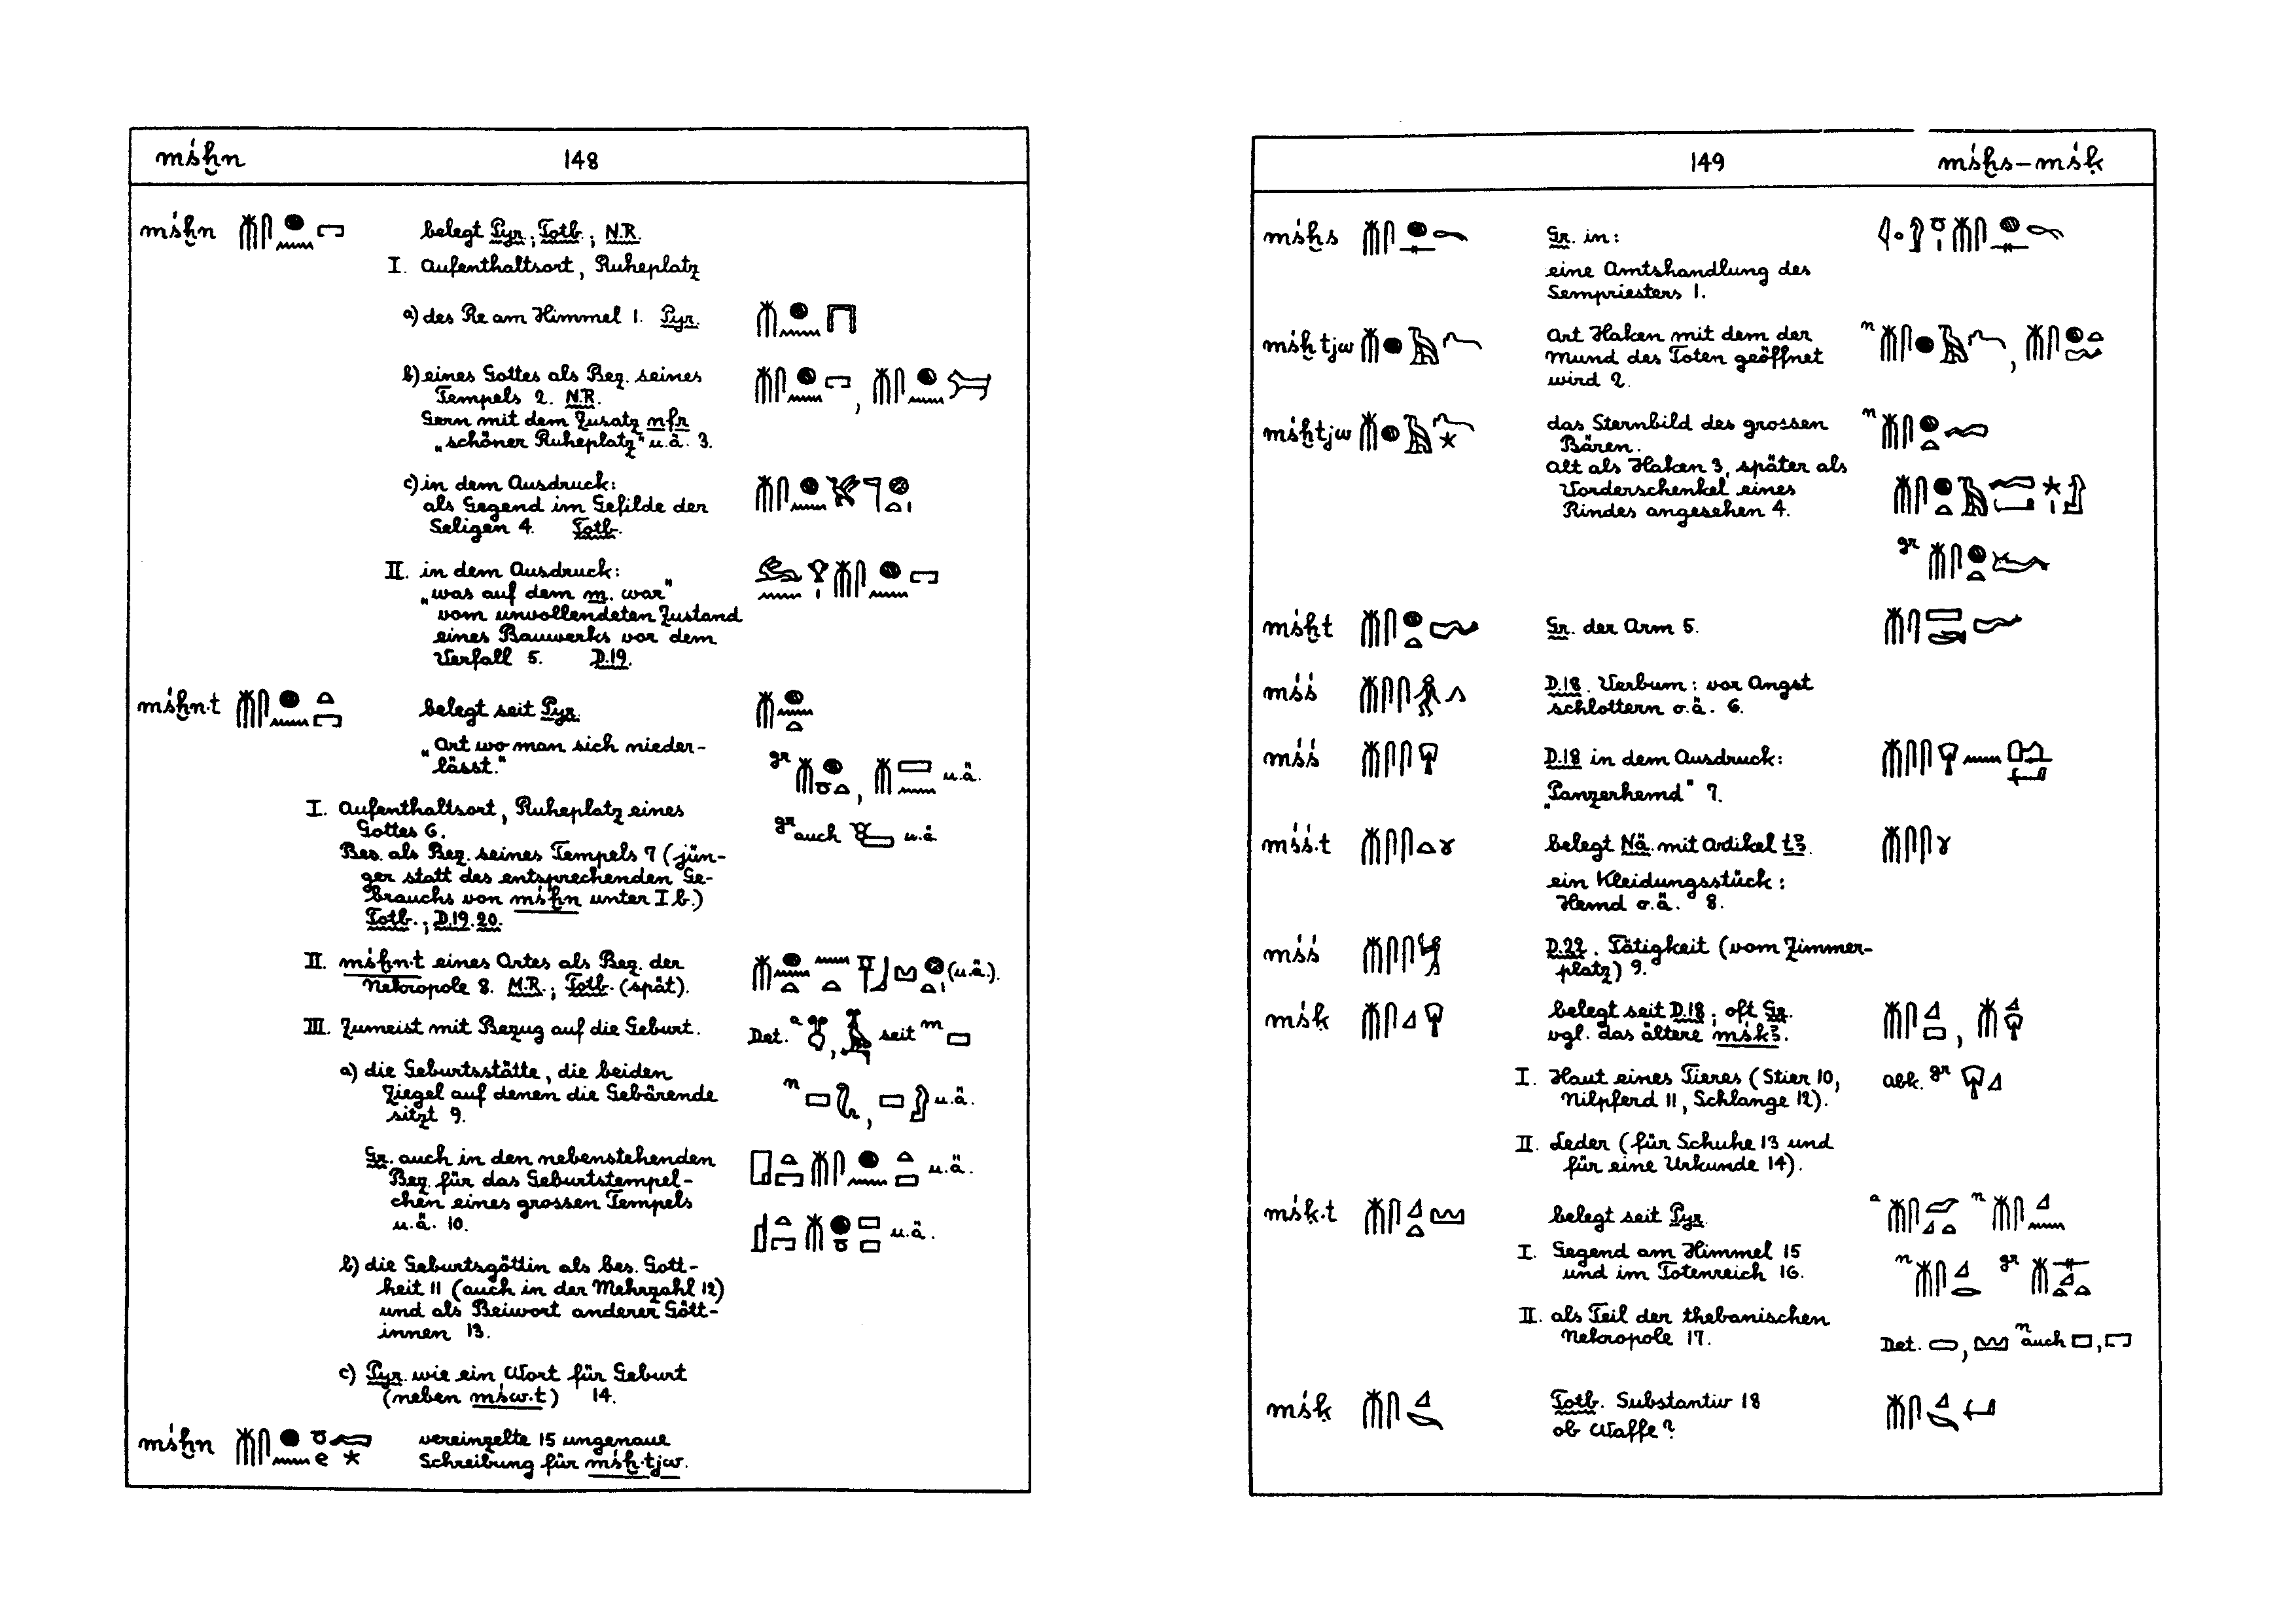 mśḫn 148
mśḫn belegt Pyr.; Totb.; N.R.
I. Aufenthaltsort, Ruheplatz
a) des Re am Himmel 1. Pyr.
b) eines Gottes als Bez. seines
Tempels 2. N.R.
Gern mit dem Zusatz nfr
„schöner Ruheplatz" u.ä. 3.
c) in dem Ausdruck:
als Gegend im Gefilde der
Seligen 4. Totb.
II. in dem Ausdruck:
„was auf dem m. war"
vom unvollendeten Zustand
eines Bauwerks vor dem
Verfall 5. D.19.
mśḫn·t belegt seit Pyr.
„Ort wo man sich nieder-
lässt."
gr , u.ä.
I. Aufenthaltsort, Ruheplatz eines
Gottes 6.
gr auch u.ä.
Bes. als Bez. seines Tempels 7 (jün-
ger statt des entsprechenden Ge-
brauchs von mśḫn unter I b.)
Totb.; D.19.20.
II. mśḫn·t eines Ortes als Bez. der (u.ä.).
Nekropole 8. M.R.; Totb. (spät).
III. Zumeist mit Bezug auf die Geburt. Det. a , seit m
a) die Geburtsstätte, die beiden
Ziegel auf denen die Gebärende n , u.ä.
sitzt 9.
Gr. auch in den nebenstehenden u.ä.
Bez. für das Geburtstempel-
chen eines grossen Tempels
u.ä. 10. u.ä.
b) die Geburtsgöttin als bes. Gott-
heit 11 (auch in der Mehrzahl 12)
und als Beiwort anderer Gött-
innen 13.
c) Pyr. wie ein Wort für Geburt
(neben mśw·t) 14.
mśḫn vereinzelte 15 ungenaue
Schreibung für mśḫ·tjw.
149 mśḫs–mśḳ
mśḫs Gr. in:
eine Amtshandlung des
Sempriesters 1.
mśḫtjw Art Haken mit dem der n ,
Mund des Toten geöffnet
wird 2.
mśḫtjw das Sternbild des grossen n
Bären.
Alt als Haken 3, später als
Vorderschenkel eines
Rindes angesehen 4.
gr
mśḫt Gr. der Arm 5.
mśś D.18. Verbum: vor Angst
schlottern o.ä. 6.
mśś D.18 in dem Ausdruck:
„Panzerhemd" 7.
mśś·t belegt Nä. mit Artikel tꜣ.
ein Kleidungsstück:
Hemd o.ä. 8.
mśś D.22. Tätigkeit (vom Zimmer-
platz) 9.
mśk belegt seit D.18; oft Gr. ,
vgl. das ältere mśkꜣ.
I. Haut eines Tieres (Stier 10, abk. gr
Nilpferd 11, Schlange 12).
II. Leder (für Schuhe 13 und
für eine Urkunde 14).
mśḳ·t belegt seit Pyr. a n
I. Gegend am Himmel 15 n gr
und im Totenreich 16.
II. als Teil der thebanischen
Nekropole 17. Det. , n auch ,
mśḳ Totb. Substantiv 18
ob Waffe?